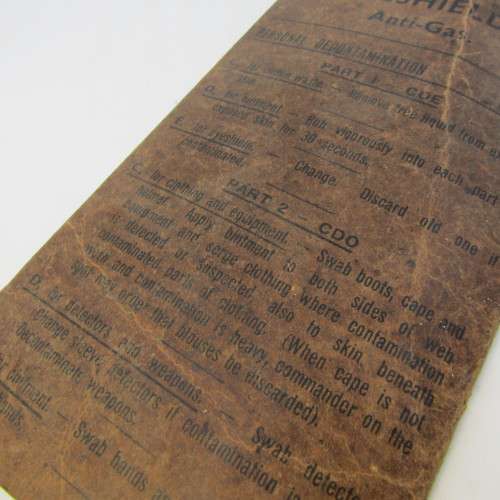 SHIEL
Anti-Gas.
PERSONAL DECONTAMINATION
PART 1 - CUE
Remove free liquid from ex
O. for ointment. Rub vigorously into each part
exposed skin for 30 seconds.
E. for eyeshield. — Change. Discard old one if
contaminated.
PART 2 - CDO
C. for clothing and equipment. - Swab boots, cape and
helmet. Apply ointment to both sides of web
equipment and serge clothing where contamination
is detected or suspected, also to skin beneath
contaminated parts of clothing. (When cape is not
worn and contamination is heavy, commander on the
spot may order that blouses be discarded).
D. for detectors and weapons. — Swab detecto
Change sleeve detectors if contamination is
Decontaminate weapons.
ointment. - Swab hands a
ands.